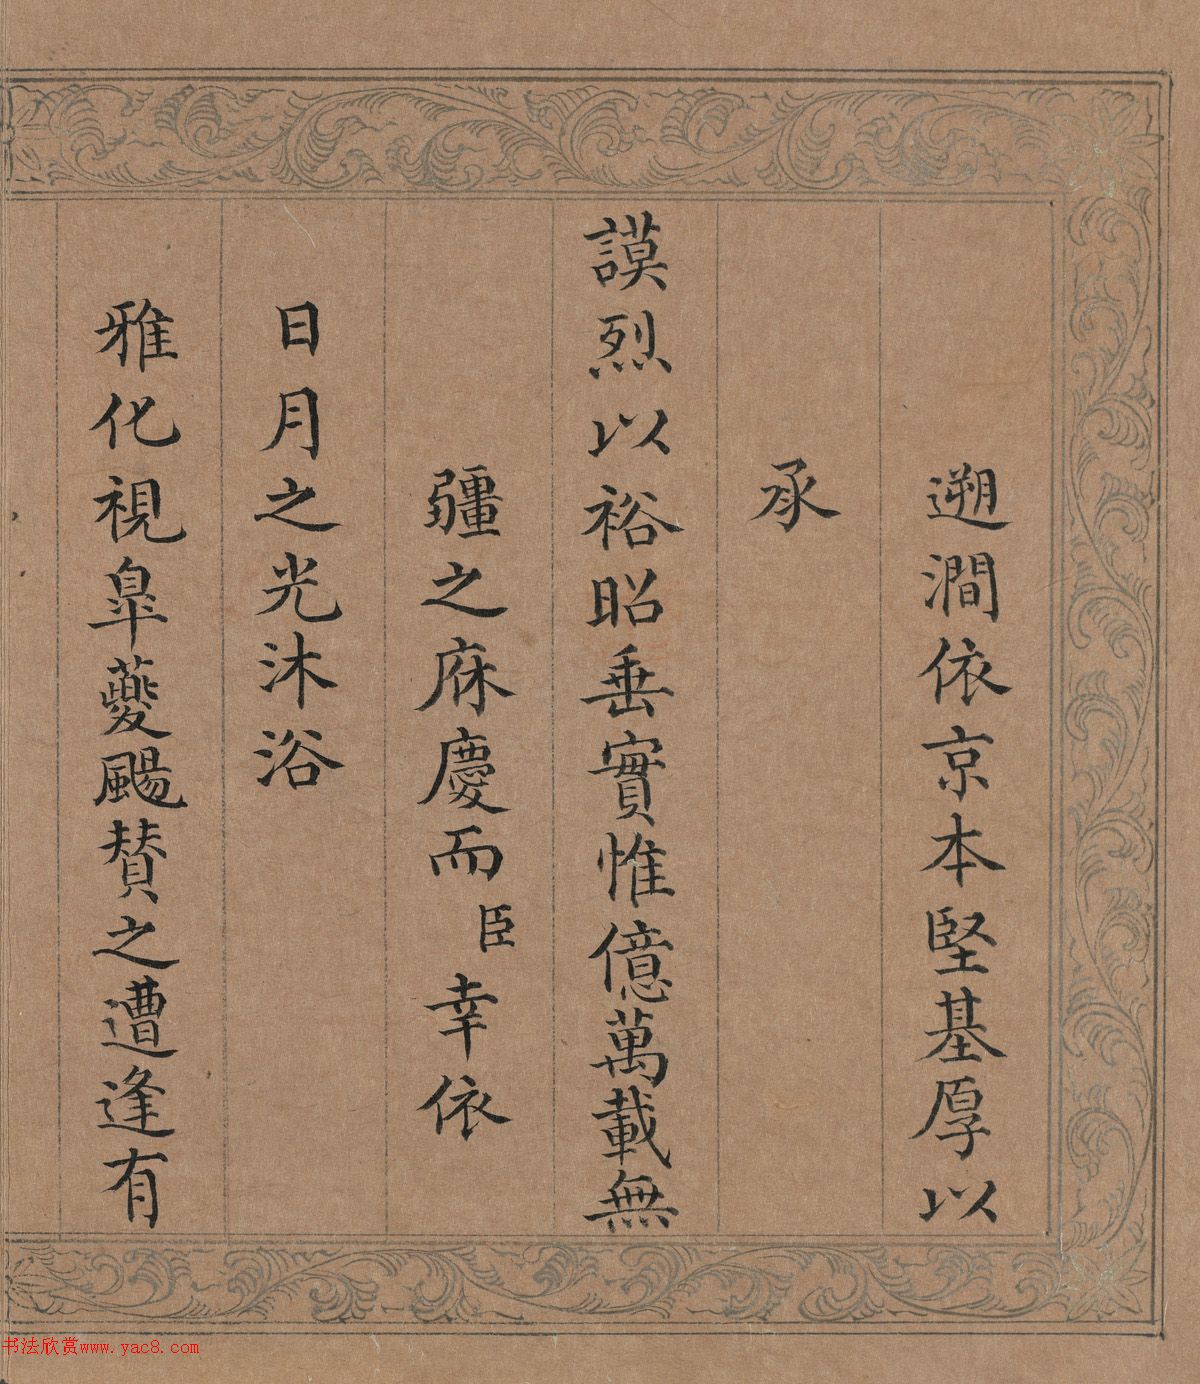 遡澗依京本堅基厚以
承
謨烈以裕昭垂實惟億萬載無
疆之庥慶而臣幸依
日月之光沐浴
雅化視臯夔颺賛之遭逢有
书法欣赏www.yac8.com